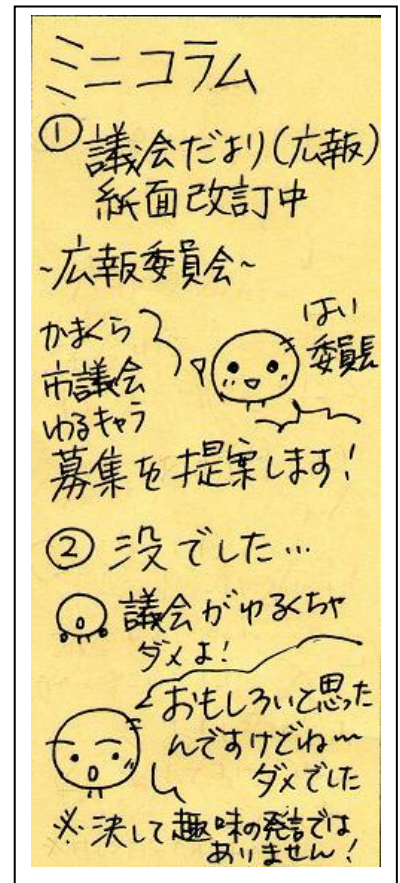 ミニコラム
① 議会だより(広報)
紙面改訂中
~広報委員会~
はい
委員長
かまくら
市議会
ゆるキャラ
募集を提案します!
② 没でした…
議会がゆるくちゃ
ダメよ!
おもしろいと思った
んですけどね〜
ダメでした
※決して趣味の発言では
ありません!